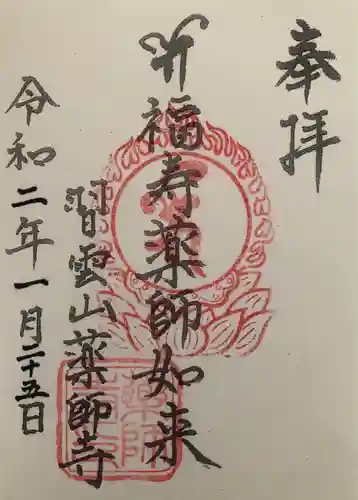 奉拝
福寿薬師如来
習雲山薬師寺
令和二年一月二十五日